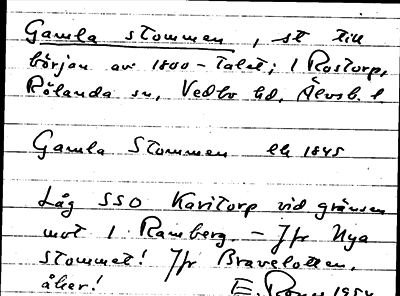 Gamla stommen, st till
början av 1800-talet; 1 Rostorp,
Rölanda sn, Vedbo hd, Älvsb. l
Gamla Stommen lh 1845
Låg SSO Karitorp vid gränsen
mot 1 Ramberg. - Jfr Nya
stommet! Jfr Bravelotten,
åker! E. 1954